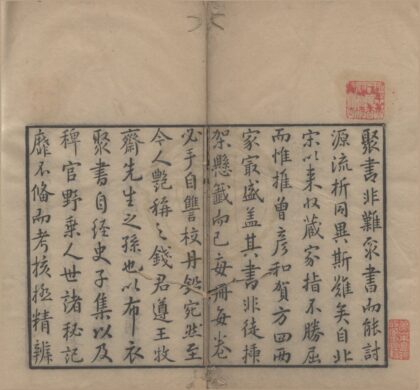 聚書非難聚書而能討
源流析同異斯難矣自北
宋以來收藏家指不勝屈
而惟推曾彥和賀方回兩
家最盛蓋其書非徒揷
架懸籤而已每冊每卷
必手自讐校丹鉛宛然至
今人艷稱之錢君遵王牧
齋先生之孫也以布衣
聚書自經史子集以及
稗官野乗人世諸秘記
靡不備而考核極精辨